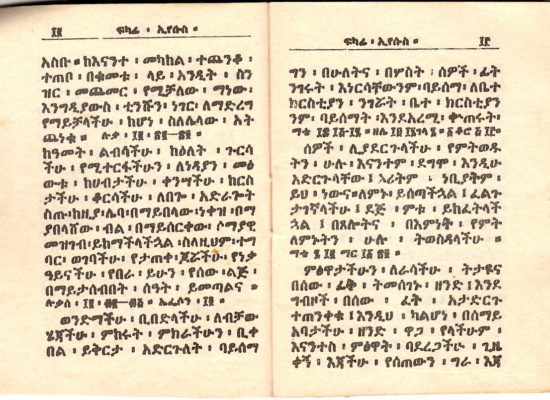 ፲፪ ፍካሬ ፡ ኢየሱስ ።
አስቡ ። ከእናንተ ፡ መካከል ፡ ተጨንቆ ፡
ተጠቦ ፡ በቁመቱ ፡ ላይ ፡ አንዲት ፡ ስን
ዝር ፡ መጨመር ፡ የሚቻለው ፡ ማነው ፡
እንግዲያውስ ፡ ቲንሹን ፡ ነገር ፡ ለማድረግ
የማይቻላችሁ ፡ ከሆነ ፡ ስለሌላው ፡ አት
ጨነቁ ።
ከዓመት ፡ ልብሳችሁ ፡ ከዕለት ፡ ጉርሳ
ችሁ ፡ የሚተርፋችሁን ፡ ለነዳያን ፡ መፅ
ውቱ ፡ ከሀብታችሁ ፡ ቀንሣችሁ ፡ ከርስ
ታችሁ ፡ ቆርሳችሁ ፡ ለበጎ ፡ አድራጎት
ስጡ ፡ ከዚያ ፡ ሌባ ፡ በማይበላው ፡ ነቀዝ ፡ በማ
ያበላሸው ፡ ብል ፡ በማይሰርቀው ፡ ሶማያዊ
መዝገብ ፡ ይከማችላችኋል ፡ ስለዚህም ፡ ተግ
ባር ፡ ወገባችሁ ፡ የታጠቀ ፡ ጆሯችሁ ፡ የነቃ
ዓይናችሁ ፡ የበራ ፡ ይሁን ፡ የሰው ፡ ልጅ ፡
በማይታሰብበት ፡ ሰዓት ፡ ይመጣልና ።
ወንድማችሁ ፡ ቢበድላችሁ ፡ ለብቻው
ሄዳችሁ ፡ ምከሩት ፡ ምክራችሁን ፡ ቢቀ
በል ፡ ይቅርታ ፡ አድርጉለት ፡ ባይሰማ
ፍካሬ ፡ ኢየሱስ ። ፲፫
ግን ፡ በሁለትና ፡ በሦስት ፡ ሰዎች ፡ ፊት
ንገሩት ፡ እነርሳቸውንም ፡ ባይሰማ ፡ ለቤተ
ክርስቲያን ፡ ንገሯት ፡ ቤተ ፡ ክርስቲያን
ንም ፡ ባይሰማት ፡ እንደአረሚ ፡ ቍጠሩት ።
ሰዎች ፡ ሊያደርጉላችሁ ፡ የምትወዱ
ትን ፡ ሁሉ ፡ እናንተም ፡ ደግሞ ፡ እንዲሁ
አድርጉላቸው ፤ ኦሪትም ፡ ነቢያትም ፡
ይህ ፡ ነውና ። ለምኑ ፡ ይሰጣችኋል ፤ ፈልጉ
ታገኛላችሁ ፤ ደጅ ፡ ምቱ ፡ ይከፈትላች
ኋል ፤ በጸሎትና ፡ በእምነት ፡ የምት
ለምኑትን ፡ ሁሉ ፡ ትወስዳላችሁ ።
ምፅዋታችሁን ፡ ለራሳችሁ ፡ ትታዩና
በሰው ፡ ፊት ፡ ትመሰገኑ ፡ ዘንድ ፤ እንደ
ግብዞች ፡ በሰው ፡ ፊት ፡ አታድርጉ
ተጠንቀቁ ፤ እንዲህ ፡ ካልሆነ ፡ በሰማይ
አባታችሁ ፡ ዘንድ ፡ ዋጋ ፡ የላችሁም ፡
እናንተስ ፡ ምፅዋት ፡ ባደረጋችሁ ፡ ጊዜ
ቀኝ ፡ እጃችሁ ፡ የሰጠውን ፡ ግራ ፡ እጃ